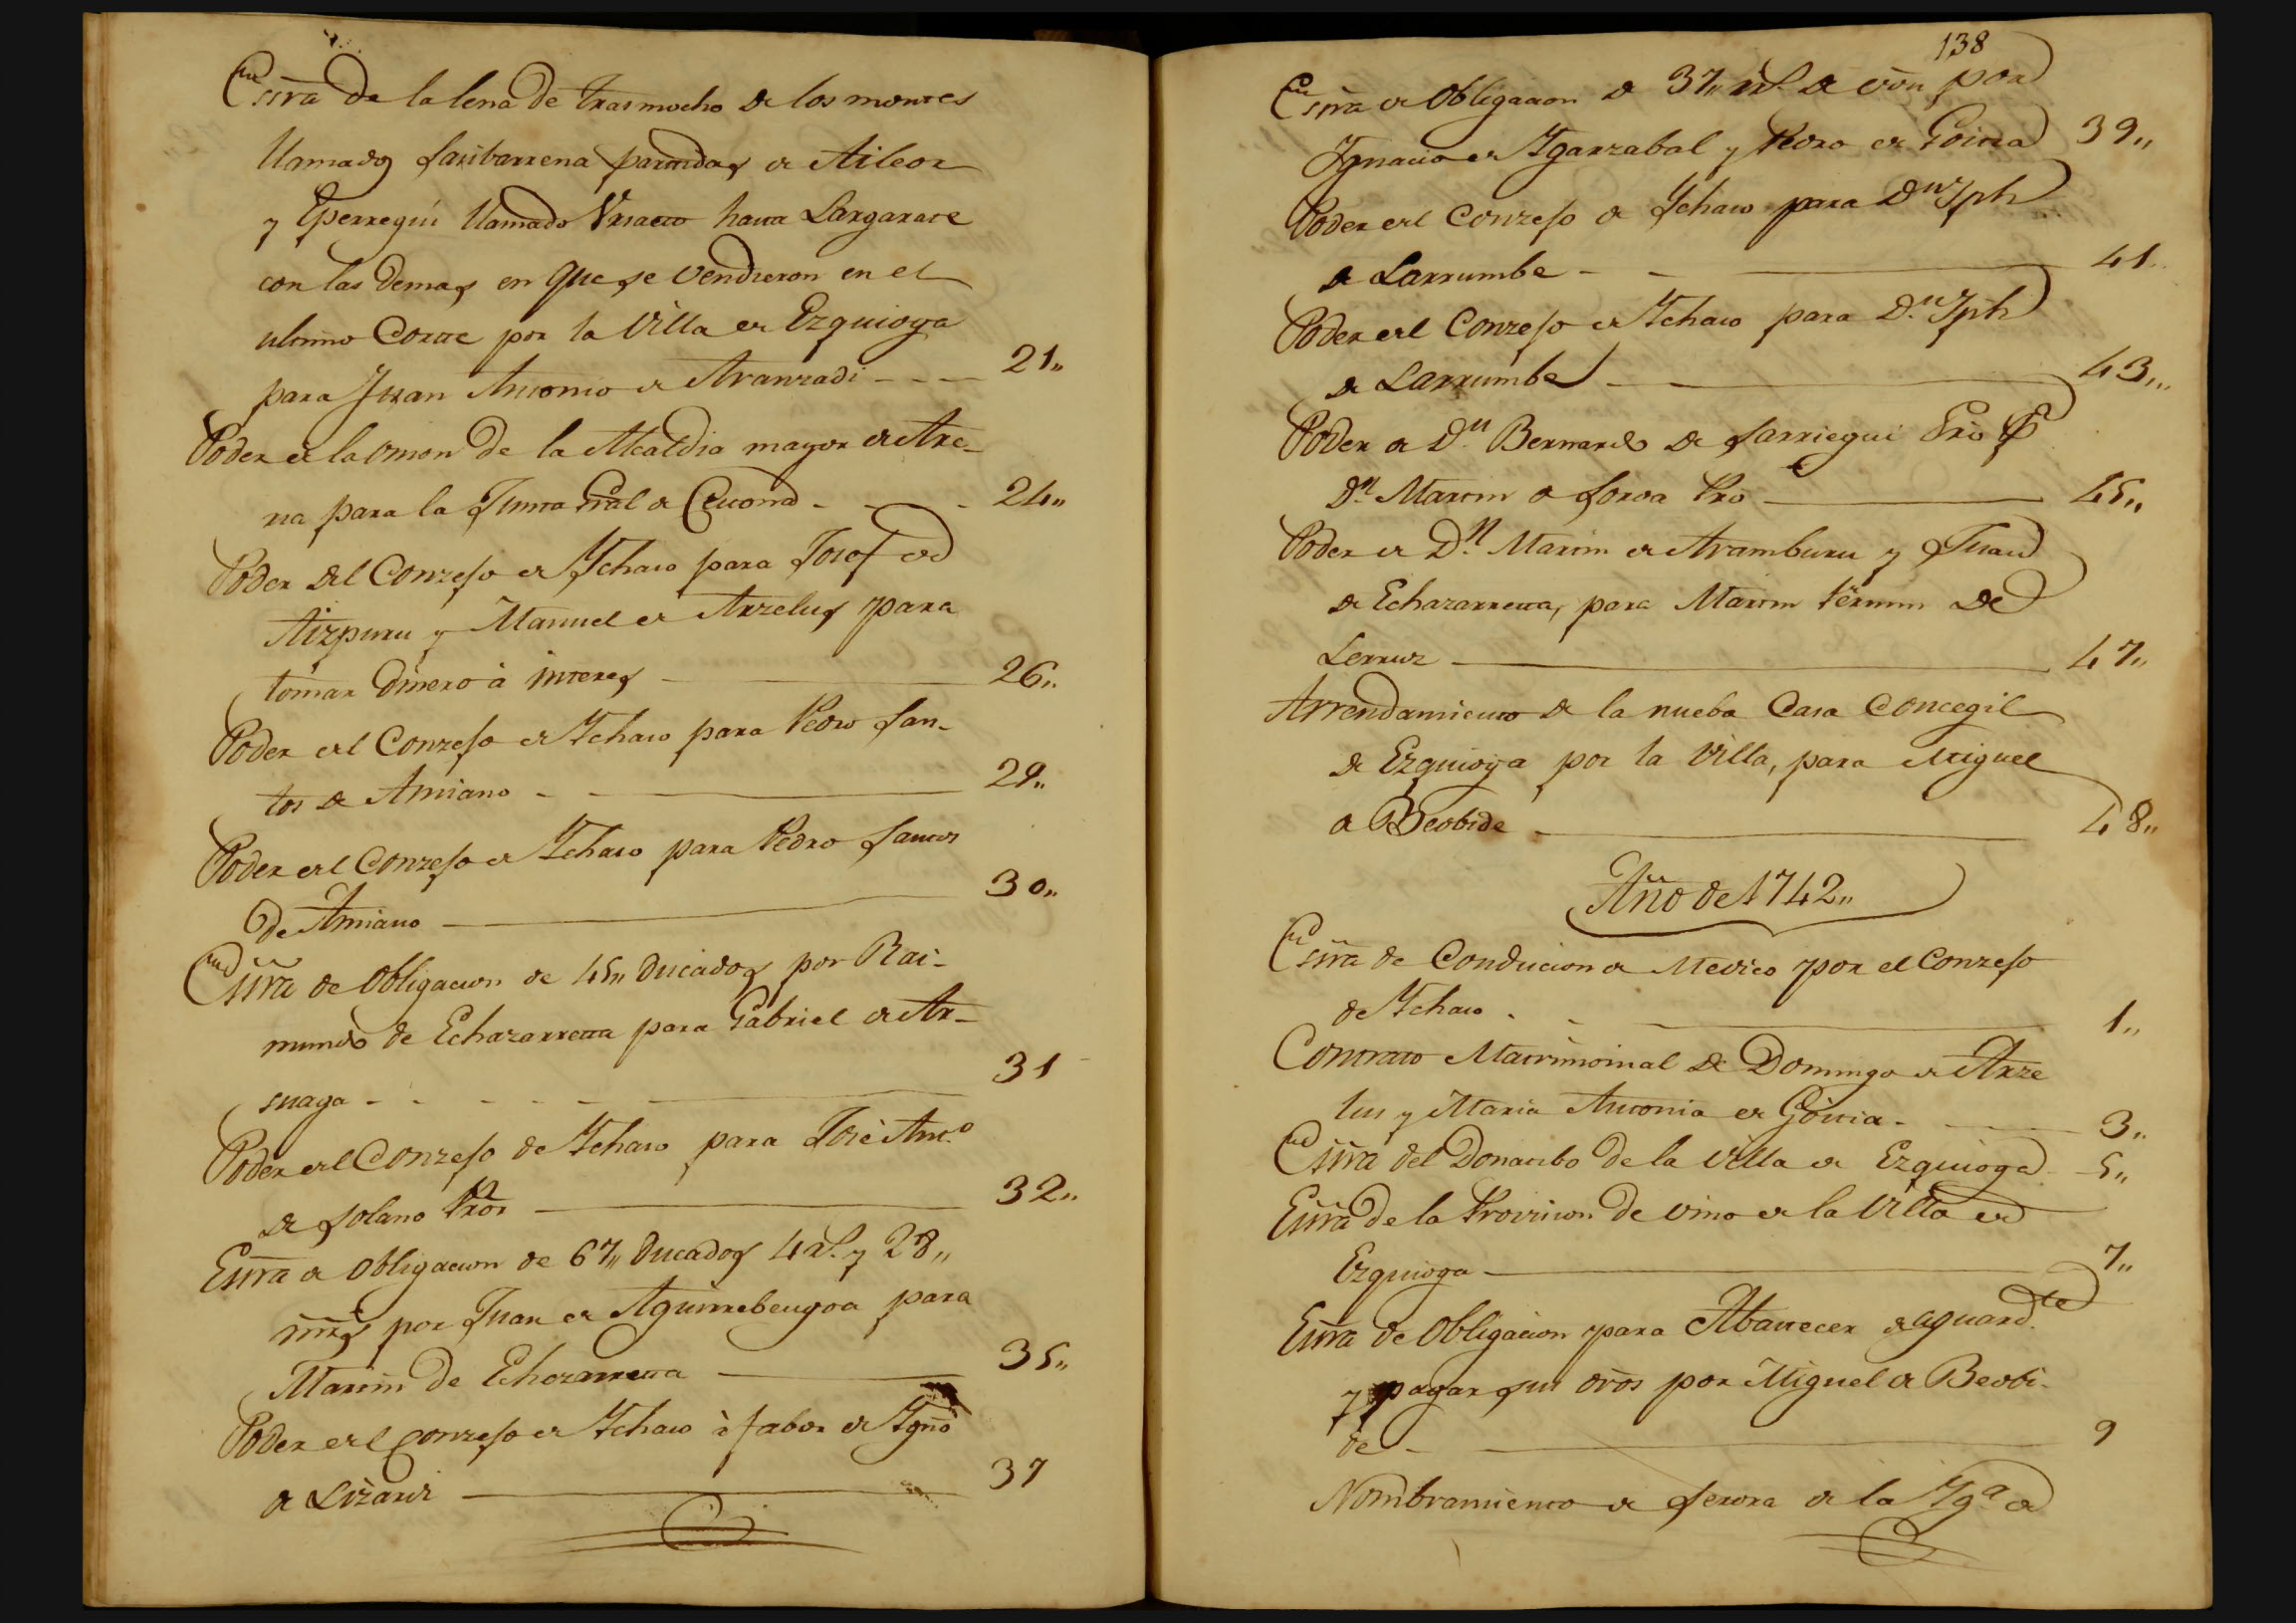 Essra de la lena de trasmocho de los montes
llamados Saribarrena partidas de Aileor
y Eperregui llamado Vrsaeto hasta Largarate
con las demas en que se vendieron en el
ultimo Corte por la Villa de Ezquioga
para Juan Antonio de Aranzadi - - - 21"
Poder de la Vnion de la Alcaldia mayor de Are-
na para la Junta Gral de Cestona - - - 24"
Poder del Conzejo de Ychaso para Josef de
Aizpuru y Manuel de Arzelus para
tomar dinero à interes 26"
Poder del Conzejo de Ychaso para Pedro San-
tos de Amiano - - 29"
Poder del Conzejo de Ychaso para Pedro Santos
de Amiano 30"
Essra de obligacion de 45" ducados por Rai-
mundo de Echazarreta para Gabriel de Ar-
suaga - - - - - 31
Poder del Conzejo de Ychaso para José Antº
de Solano Pror 32"
Essra de obligacion de 67" ducados 4 rs. y 28"
mrs por Juan de Aguirrebengoa para
Martin de Echazarreta 35"
Poder del Conzejo de Ychaso à fabor de Ygnº
de Lizardi 37
138
Essra de obligacion de 37" rs. de von por
Ygnacio de Ygarzabal y Pedro de Goitia 39"
Poder del Conzejo de Ychaso para Dn Jph
de Larrumbe - - 41"
Poder del Conzejo de Ychaso para Dn Jph
de Larrumbe 43"
Poder de Dn Bernardo de Sarriegui
Dn Martin de Soroa Pro 45"
Poder de Dn Martin de Aramburu y Juan
de Echazarreta, para Martin Fermin de
Lersur 47"
Arrendamiento de la nueba Casa Concegil
de Ezquioga por la Villa, para Miguel
de Beobide 48"
Año de 1742"
Essra de Conducion de Medico por el Conzejo
de Ychaso - - 1"
Contrato Matrimoinal de Domingo de Arze
lus y Maria Antonia de Goitia - 3"
Essra del Donatibo de la Villa de Ezquioga - 5"
Essra de la Provision de vino de la Villa de
Ezquioga 7"
Essra de obligacion para Abastecer de aguardte
y pagar sus dros por Miguel de Beobi-
de - 9
Nombramiento de Serora de la Ygª de